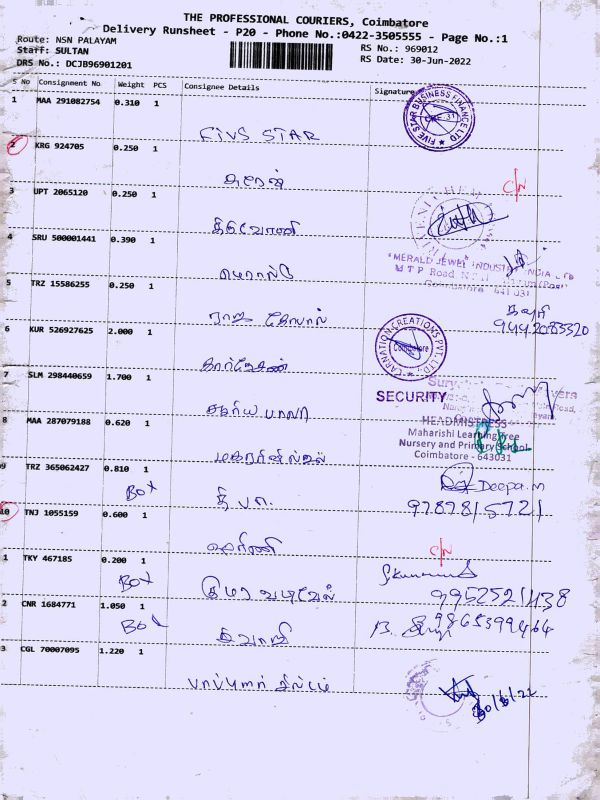 THE PROFESSIONAL COURIERS, Coimbatore
Delivery Runsheet - P20 - Phone No.:0422-3505555 - Page No.:1
Route: NSN PALAYAM
RS No.: 969012
Staff: SULTAN
RS Date: 30-Jun-2022
DRS No.: DCJB96901201
S No Consignment No Weight PCS Consignee Details Signature
1 MAA 291082754 0.310 1
FIVS STAR
FIVE STAR BUSINESS FINANCE LTD
2 KRG 924705 0.250 1
சுரேஷ்
C/N
3 UPT 2065120 0.250 1
4 SRU 500001441 0.390 1
MERALD JEWEL INDUSTRY INDIA LTD
M T P Road
Coimbatore 641 031
5 TRZ 15586255 0.250 1
ராஜ கோபால்
9442083320
6 KUR 526927625 2.000 1
CARNATION CREATIONS PVT. LTD.
Coimbatore
கார்த்திகேயன்
7 SLM 298440659 1.700 1
SECURITY
சத்யா பாலா
8 MAA 287079188 0.620 1
HEADMISTRESS
Maharishi Learning Tree
Nursery and Primary School
Coimbatore - 643031
9 TRZ 365062427 0.810 1
Box
தீபா
Deepa.m
9789815721
10 TNJ 1055159 0.600 1
ஹரிணி
C/N
1 TKY 467185 0.200 1
Box
குமர வடிவேல்
9952521438
2 CNR 1684771 1.050 1
Box
9865399464
3 CGL 70007095 1.220 1
30/6/22